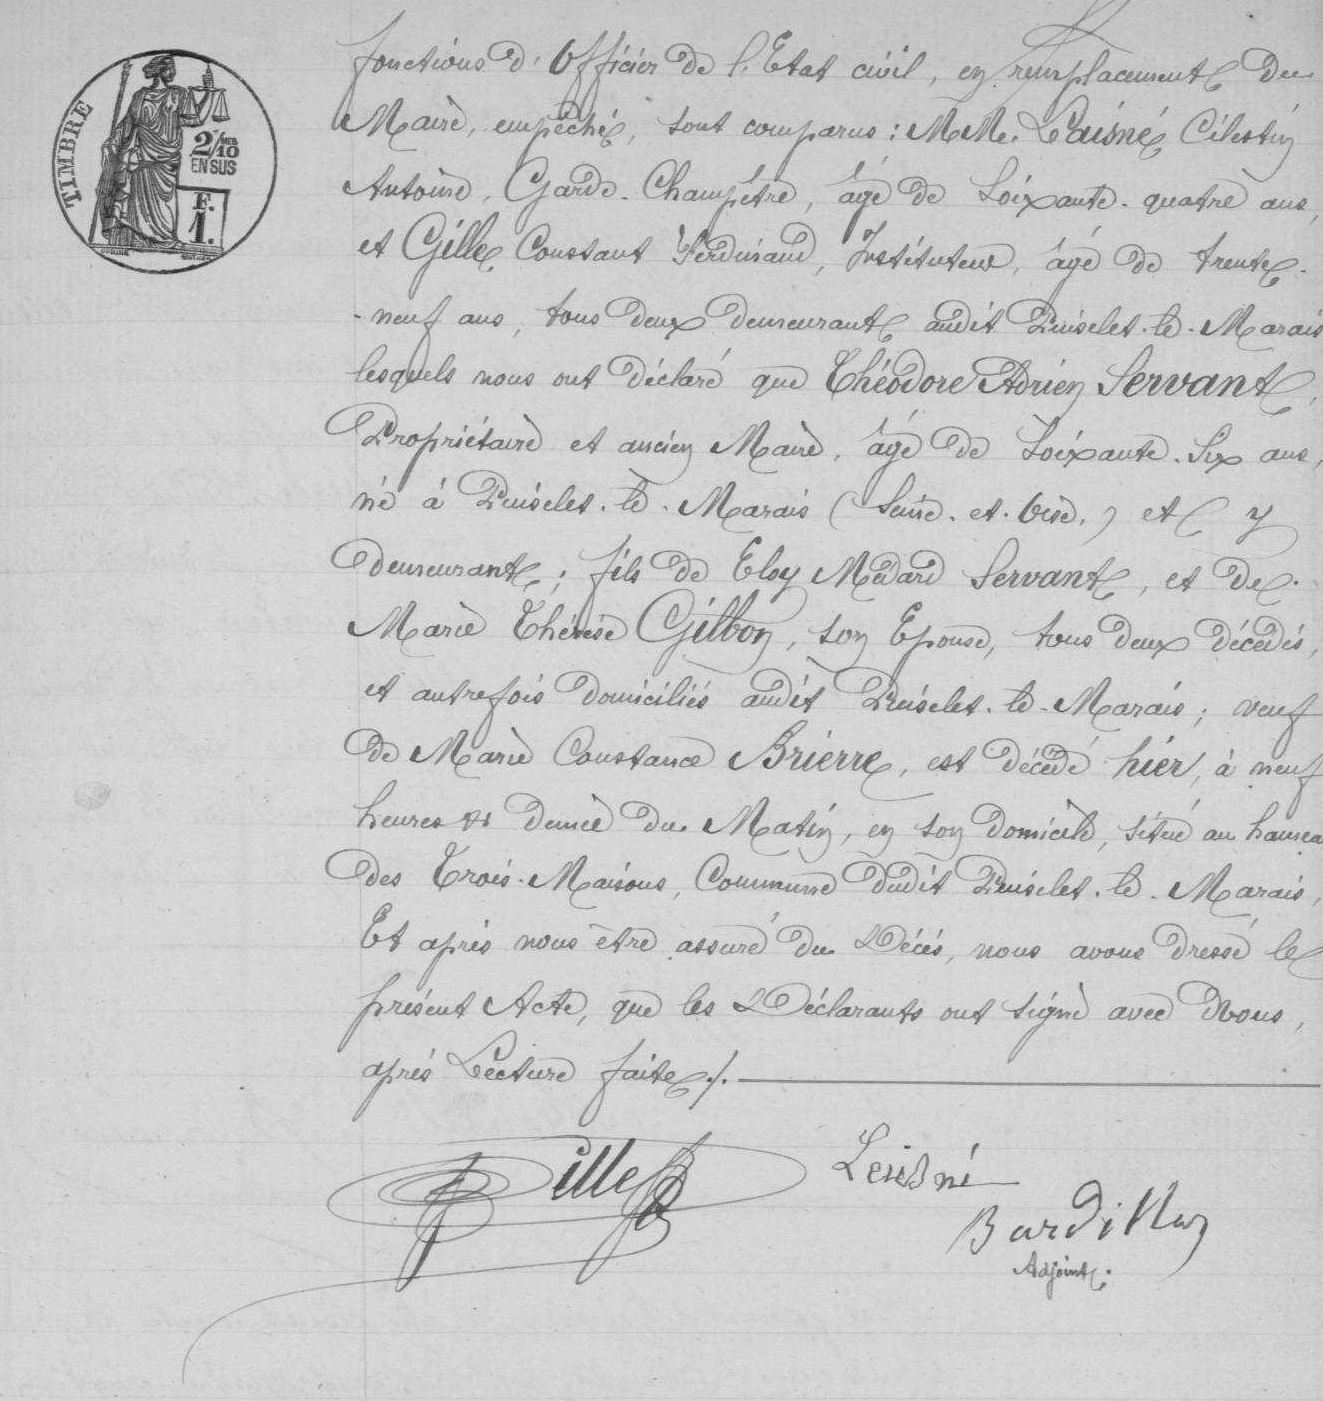 fonctions d'Officier de l'Etat civil, en remplacement du
Maire, empêché, sont comparus : MM. Laisné Célestin
Antoine, Garde-Champêtre, âgé de Soixante-quatre ans,
et Gille Constant Ferdinand, Instituteur, âgé de trente-
-neuf ans, tous deux demeurant audit Puiselet-le-Marais
lesquels nous ont déclaré que Théodore Adrien Servant,
Propriétaire et ancien Maire, âgé de Soixante-Six ans,
né à Puiselet-le-Marais (Seine-et-Oise.) et y
demeurant ; fils de Eloy Médard Servant, et de
Marie Thérèse Gilbon, son Epouse, tous deux décédés,
et autrefois domiciliés audit Puiselet-le-Marais ; veuf
de Marie Constance Brierre, est décédé hier, à neuf
heures et demie du Matin, en son domicile, situé au hamea
des Trois-Maisons, Commune dudit Puiselet-le-Marais,
Et après nous être assuré du Décès, nous avons dressé le
présent Acte, que les Déclarants ont signé avec Nous,
après Lecture faite./.
TIMBRE
2/10
EN SUS
F.
1.
Gille
Leiesné
Bardillon
Adjoint.